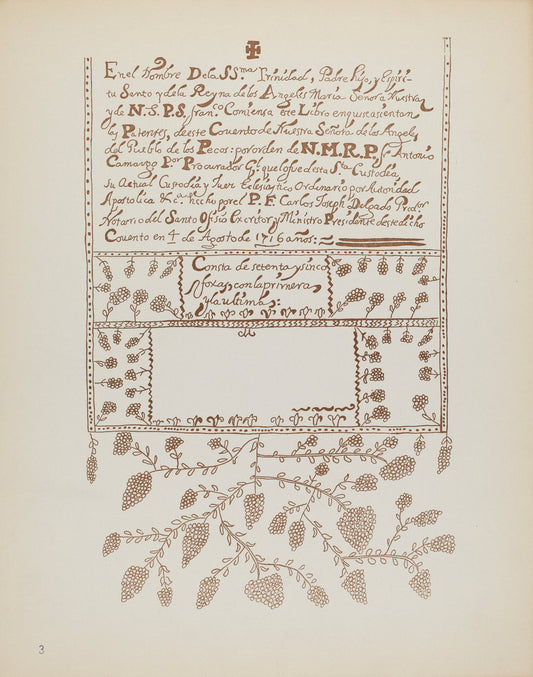 En el Nombre De la SS.ma Trinidad, Padre Hijo, y Espiri-
tu Santo y de la Reyna de los Angeles Maria Señora Nuestra
y de N.S.P.S. Fran.co Comiensa este Libro en que se asientan
las Patentes, de este Convento de Nuestra Señora de los Angeles
del Pueblo de los Pecos: por orden de N.M.R.P. Fr Antonio
Camargo Por Procurador G.l que lo fue desta S.ta Custodia,
su Actual Custodio y Juez Eclesiastico Ordinario por Autoridad
Apostolica &c.a hecho por el P. F. Carlos Joseph Delgado Pred.or
Notario del Santo Ofisio Escritor y Ministro Presidente deste dicho
Convento en 4 de Agosto de 1716 años:
Consta de setenta y sinco
foxas, con la primera,
y la ultima:
3